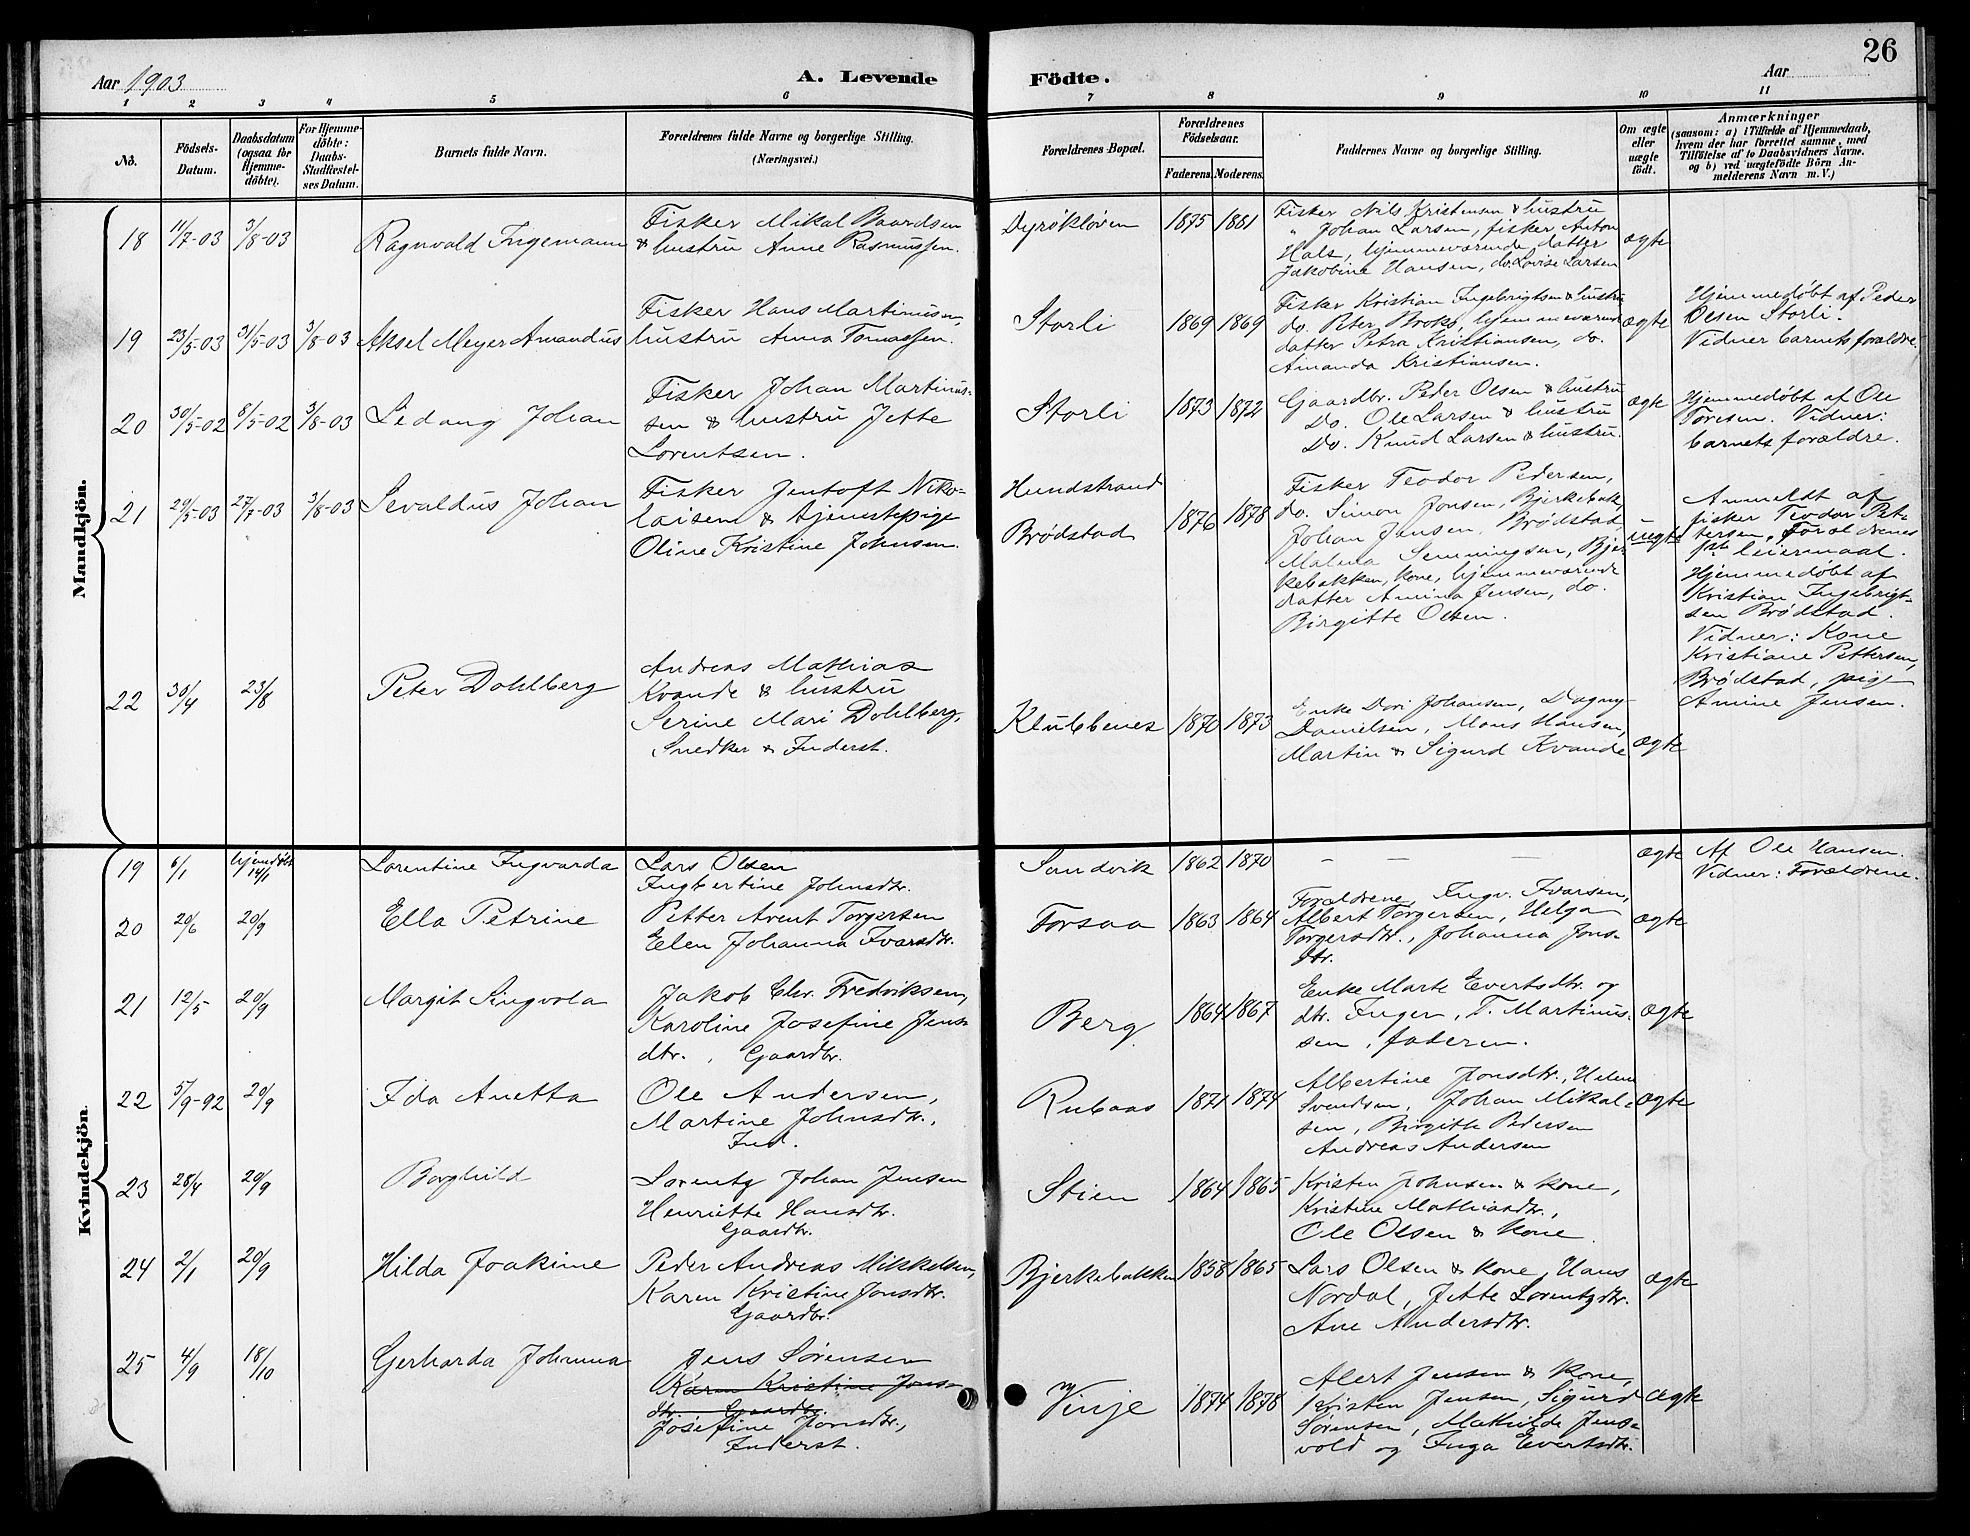 26
Aar 1903
A. Levende
Födte.
Aar
1 2 3 4 5 6 7 8 9 10 11
No.
Födsels-
Datum.
Daabsdatum
(ogsaa for
Hjemme-
döbte).
For Hjemme-
döbte:
Daabs-
Stadfæstel-
ses Datum.
Barnets fulde Navn.
Forældrenes fulde Navne og borgerlige Stilling.
(Næringsvei.)
Forældrenes Bopæl.
Forældrenes
Födselsaar.
Faderens. Moderens.
Faddernes Navne og borgerlige Stilling.
Om ægte
eller
uægte
födt.
Anmærkninger
(saasom: a) i Tilfælde af Hjemmedaab,
hvem der har forrettet samme, med
Tilföielse af to Daabsvidners Navne.
og b) ved uægtefödte Börn An-
melderens Navn m. V.)
Mandkjön.
18 11/7-03 3/8-03 Ragnvald Ingemann
Fisker Mikal Baardsen
& hustru Anne Rasmussen.
Dyrøkløven 1875 1881
Fisker Nils Kristensen & hustru
" Johan Larsen, fisker Anton
Hals, hjemmeværende datter
Jakobine Hansen, do. Lovise Larsen
ægte
19 23/5-03 31/5-03 3/8-03 Aksel Meyer Amandus
Fisker Hans Martinusen,
hustru Anna Tomassen.
Storli 1869 1869
Fisker Kristian Ingebrigtsen & hustru
do. Peter Broks, hjemmeværende
datter Petra Kristiansen, do.
Amanda Kristiansen.
ægte
Hjemmedøbt af Peder
Olsen Storli.
Vidner barnets forældre.
20 30/5-02 8/5-02 3/8-03 Ledang Johan
Fisker Johan Martinus-
sen & hustru Jette
Lorentsen.
Storli 1873 1872
Gaardbr. Peder Olsen & hustru
Do. Ole Larsen & hustru
Do. Knud Larsen & hustru.
ægte
Hjemmedøbt af Ole
Toresen. Vidner:
barnets forældre.
21 29/5-03 27/7-03 3/8-03 Sevaldus Johan
Fisker Jentoft Niko-
laisen & tjenestepige
Oline Kristine Johnsen.
Hundstrand
Brødstad
1876 1878
Fisker Teodor Pedersen,
do. Simon Jonsen, Bjerkebak,
Johan Jansen, Brødstad,
Malena Semmingsen, Bjer
kebakken, kone, hjemmeværende
datter Amina Jensen, do.
Birgitte Olsen.
uægte
Anmeldt af
fisker Teodor Pet-
tersen, Forældrenes
1ste leiermaal.
Hjemmedøbt af
Kristian Ingebrigt-
sen Brødstad.
Vidner: Kone
Kristiane Pettersen,
Brødstad, pige
Amine Jensen.
22 30/4 23/8 Peter Dohlberg
Andreas Mathias
Kvande & hustru
Serine Mari Dohlberg,
Snedker & Inderst.
Klubbenes 1870 1873
Enke Dori Johansen, Dagny
Danielsen, Mons Hansen,
Martin & Sigurd Kvande
ægte
Kvindekjön.
19 6/1 hjemdøbt 14/1 Lorentine Ingvarda
Lars Olsen
Ingbertine Johnsdtr.
Sandvik 1862 1870
– – –
ægte
Af Ole Hansen.
Vidner: Forældrene.
20 20/6 20/9 Ella Petrine
Petter Arent Torgersen
Elen Johanna Ivarsdtr.
Forsaa 1863 1864
Forældrene, Ingv. Ivarsen,
Albert Torgersen, Helga
Torgersdtr., Johanna Jons-
dtr.
ægte
21 12/5 20/9 Margit Singvola
Jakob Chr. Fredriksen,
Karoline Josefine Jens
dtr., Gaardbr.
Berg 1864 1867
Enke Marte Evertsdtr. og
dtr. Inger, T. Martinus-
sen, faderen.
ægte
22 5/9-92 20/9 Ida Anetta
Ole Andersen,
Martine Johnsdtr.,
Ind.
Rubaas 1871 1874
Albertine Jonsdtr., Helene
Svendsen, Johan Mikal-
sen, Birgitte Pedersen
Andreas Andersen
ægte
23 28/4 20/9 Borghild
Lorentz Johan Jensen
Henriette Hansdtr.
Gaardbr.
Stien 1864 1865
Kristen Johnsen & kone,
Kristine Mathiasdtr.,
Ole Olsen & kone.
24 2/1 20/9 Hilda Joakime
Peder Andreas Mikkelsen,
Karen Kristine Jonsdtr.
Gaardbr.
Bjerkebakken 1858 1865
Lars Olsen & kone, Hans
Nordal, Jette Lorentzdtr.
Ane Andersdtr.
ægte
25 4/9 18/10 Gerharda Johanna
Jens Sørensen
Karen Kristine Jons-
dtr. Gaardbr.
Josefine Jonsdtr.,
Inderst.
Vinje 1874 1878
Alert Jensen & kone,
Kristen Jensen, Sigurd
Sørensen, Mathilde Jens-
vold og Inga Evertsdtr.
ægte